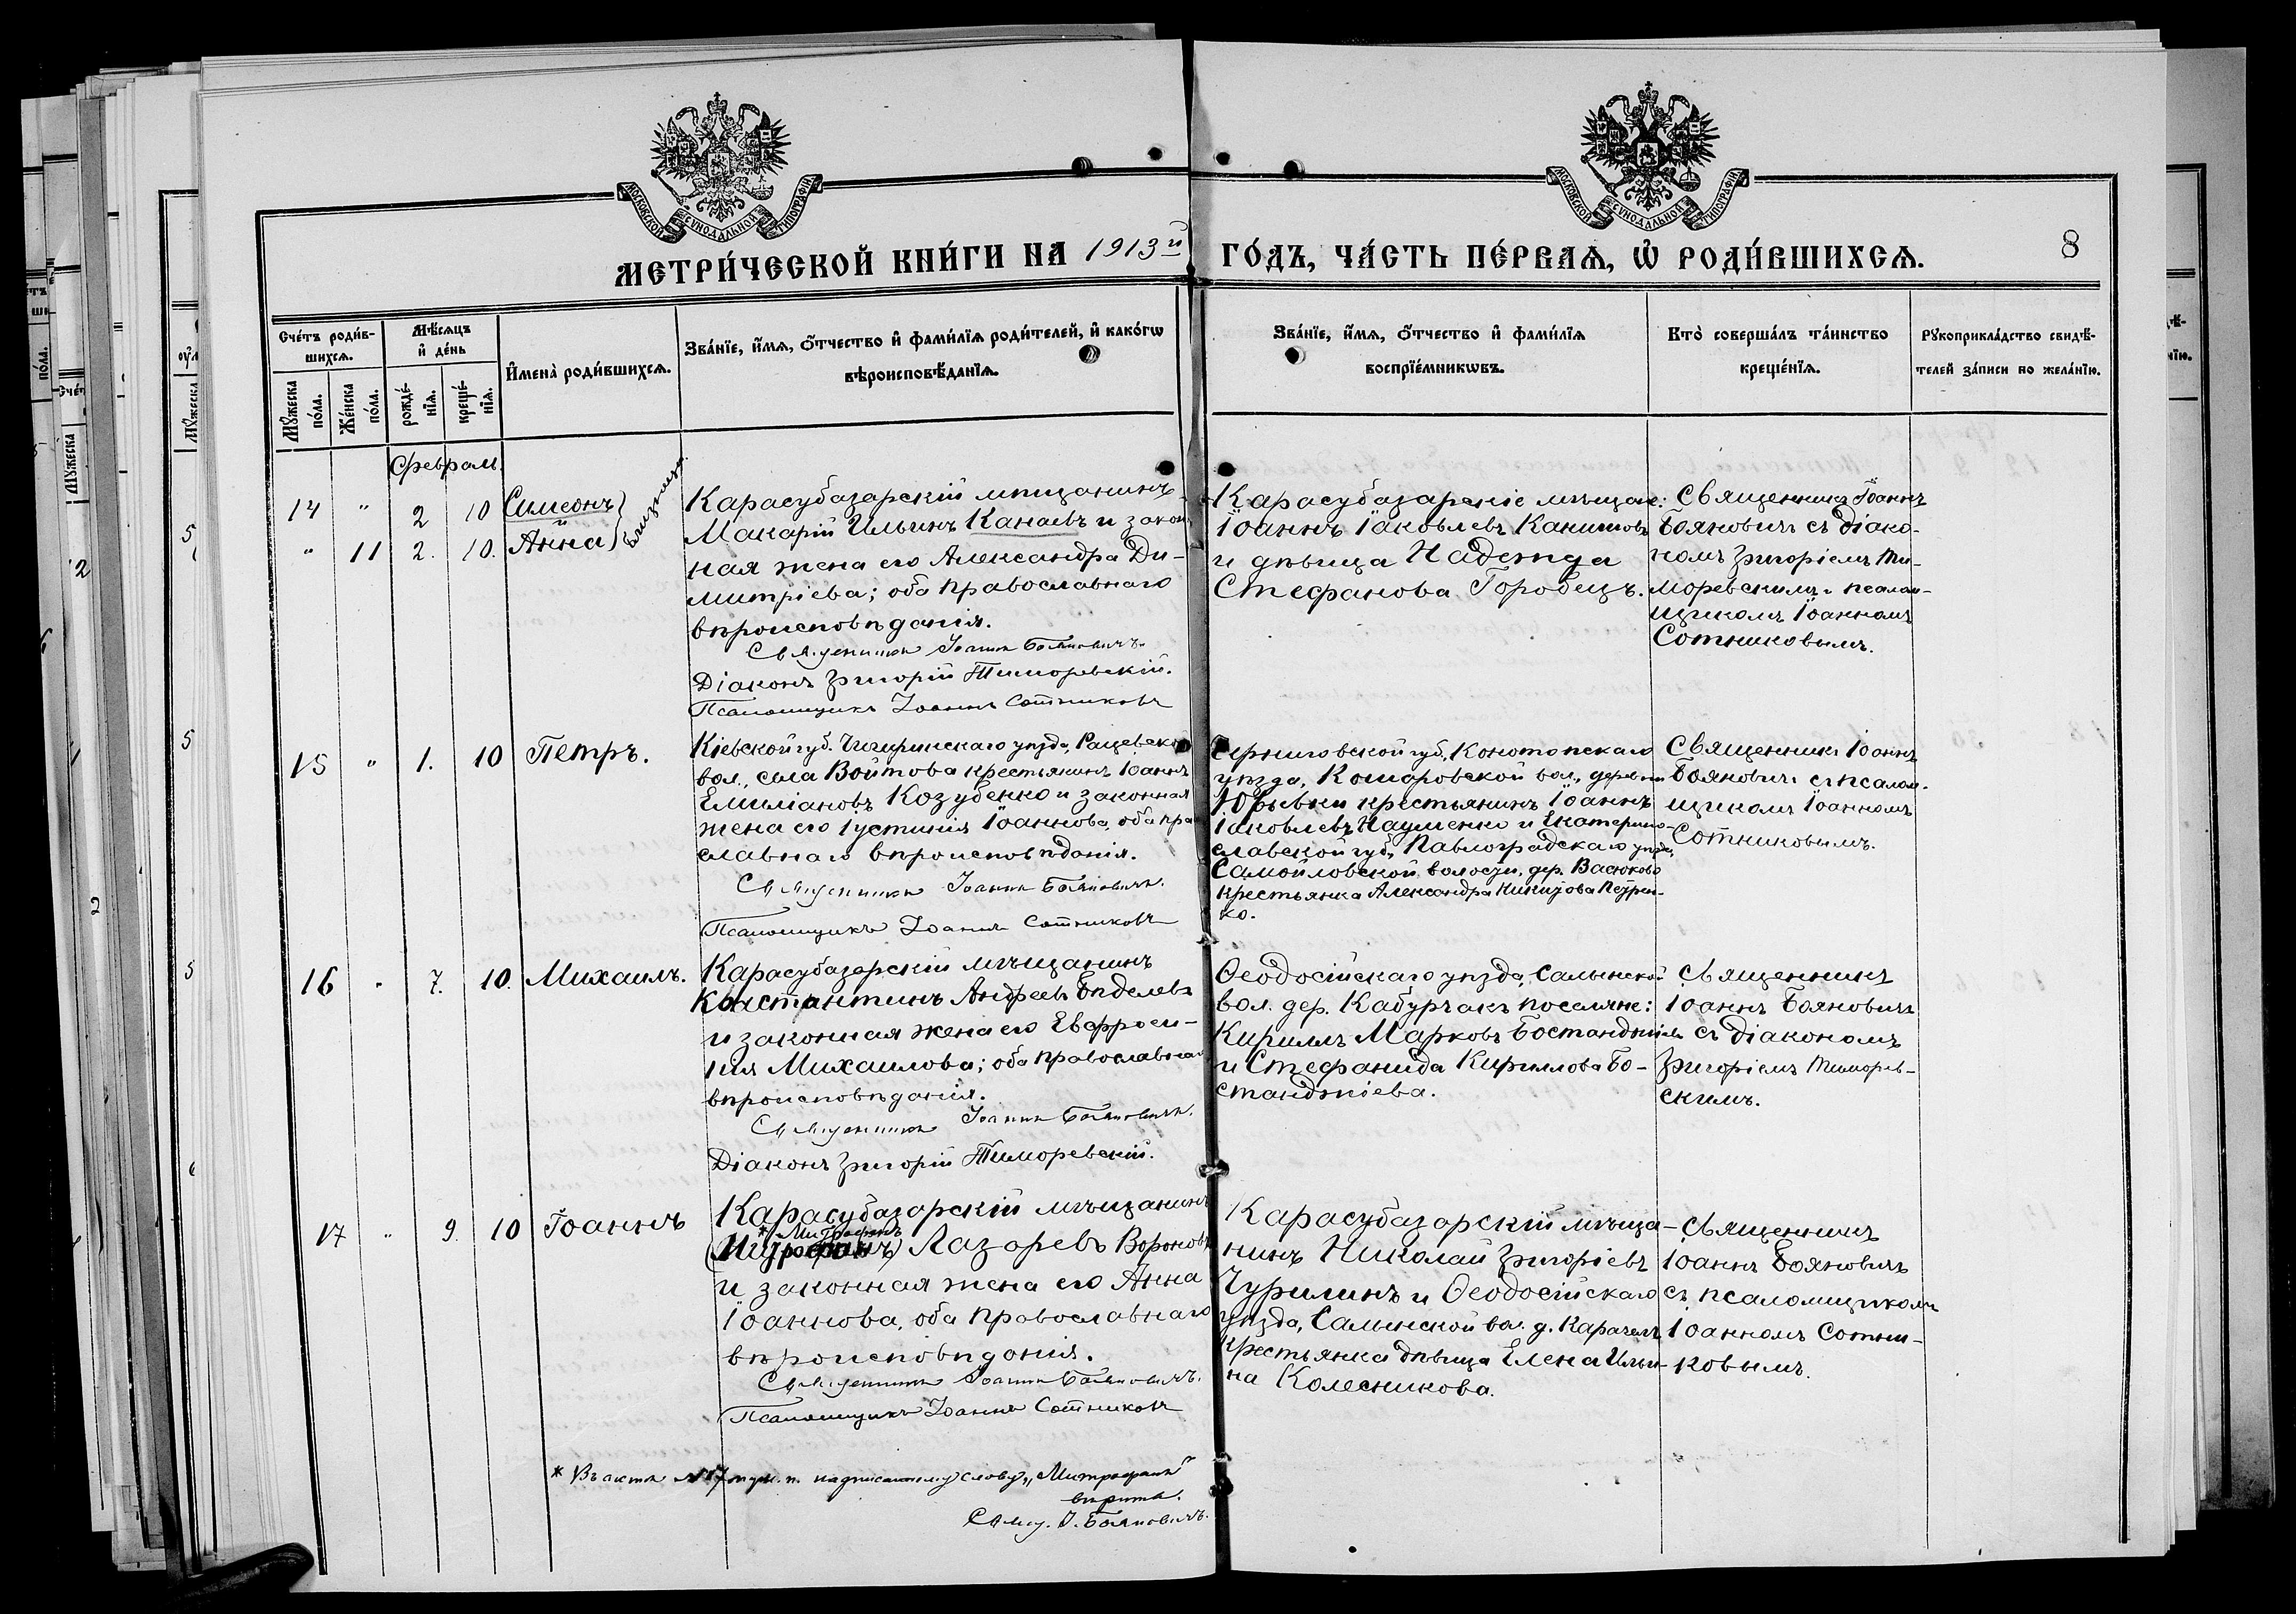 МОСКОВСКОЙ СѴНОДАЛЬНОЙ ТИПОГРАФІИ
МОСКОВСКОЙ СѴНОДАЛЬНОЙ ТИПОГРАФІИ
МЕТРИ́ЧЕСКОЙ КНИ́ГИ НА 1913й ГО́ДЪ, ЧА́СТЬ ПЕ́РВАѦ, Ѡ҆ РОДИ́ВШИХСѦ.
8
Сче́тъ роди́в-
шихсѧ.
Мꙋ́жеска
по́ла.
Же́нска
по́ла.
Мѣ́сѧцъ
и҆ де́нь
рожде́-
нїѧ.
креще́-
нїѧ.
И҆мена̀ роди́вшихсѧ.
Зва́нїе, и҆́мѧ, ѻ҆́тчество и҆ фами́лїѧ роди́телей, и҆ како́гѡ
вѣроисповѣ́данїѧ.
Зва́нїе, и҆́мѧ, ѻ҆́тчество и҆ фами́лїѧ
воспрїе́мникѡвъ.
Кто̀ соверша́лъ та́инство
креще́нїѧ.
Рꙋкоприкла́дство свидѣ́-
телей за́писи по жела́нїю.
Феврал.
14 " 2 10 Симеонъ
" 11 2. 10. Анна
близнецы
Карасубазарскій мѣщанинъ
Макарій Ильинъ Канаевъ и закон
ная жена его Александра Ди-
митріева; оба православнаго
вѣроисповѣданія.
Священникъ Іоаннъ Бояновичъ.
Діаконъ Григорій Тиморевскій.
Псаломщикъ Іоаннъ Сотниковъ
Карасубазарскіе мѣщане:
Іоаннъ Іаковлевъ
и дѣвица Надежда
Стефанова Горобецъ.
Священникъ Іоаннъ
Бояновичъ съ діако-
номъ Григоріемъ Ти-
моревскимъ и псалом-
щикомъ Іоанномъ
Сотниковымъ.
15 " 1. 10 Петръ.
Кіевской губ. Чигиринскаго уѣзда,
вол., села Войтова крестьянинъ Іоаннъ
Емиліановъ Козубенко и законная
жена его Іустинія Іоаннова, оба пра
славнаго вѣроисповѣданія.
Священникъ Іоаннъ Бояновичъ.
Псаломщикъ Іоаннъ Сотниковъ
Черниговской губ., Конотопскаго
уѣзда, Комаровской вол., деревни
Юрьевки крестьянинъ Іоаннъ
Іаковлевъ Науменко и Екатерино-
славской губ., Павлоградскаго уѣзда,
Самойловской волости, дер. Васюково
крестьянка Александра Никитова Петрен-
ко.
Священникъ Іоаннъ
Бояновичъ съ псалом-
щикомъ Іоанномъ
Сотниковымъ.
16 " 7. 10. Михаилъ.
Карасубазарскій мѣщанинъ
Константинъ Андреевъ Бѣделевъ
и законная жена его Евфроси-
нія Михаилова; оба православнаго
вѣроисповѣданія.
Священникъ Іоаннъ Бояновичъ.
Діаконъ Григорій Тиморевскій.
Ѳеодосійскаго уѣзда, Салынской
вол. дер. Кабурчакъ поселяне:
Кириллъ Марковъ Бостанджіевъ
и Стефанида Кириллова Бо-
станджіева.
Священникъ
Іоаннъ Бояновичъ
съ діакономъ
Григоріемъ Тиморев-
скимъ.
17 " 9. 10 Іоаннъ
Карасубазарскій мѣщанинъ
* Митрофанъ
Лазаревъ Вороновъ
и законная жена его Анна
Іоаннова, оба православнаго
вѣроисповѣданія.
Священникъ Іоаннъ Бояновичъ.
Псаломщикъ Іоаннъ Сотниковъ
Карасубазарскій мѣща-
нинъ Николай Григоріевъ
Чурилинъ и Ѳеодосійскаго
уѣзда, Салынской вол. д. Карачелъ
крестьянка дѣвица Елена Ильи-
на Колесникова.
Священникъ
Іоаннъ Бояновичъ
съ псаломщикомъ
Іоанномъ Сотни-
ковымъ.
* Въ актѣ №17 надписанному слову „Митрофанъ"
вѣрить.
Свящ. І. Бояновичъ.